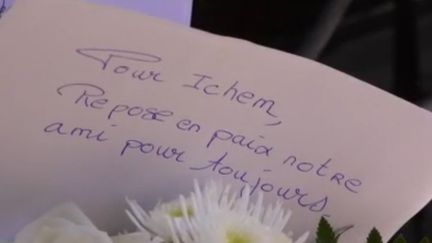 Pour Ichem,
Repose en paix notre
ami pour toujours.